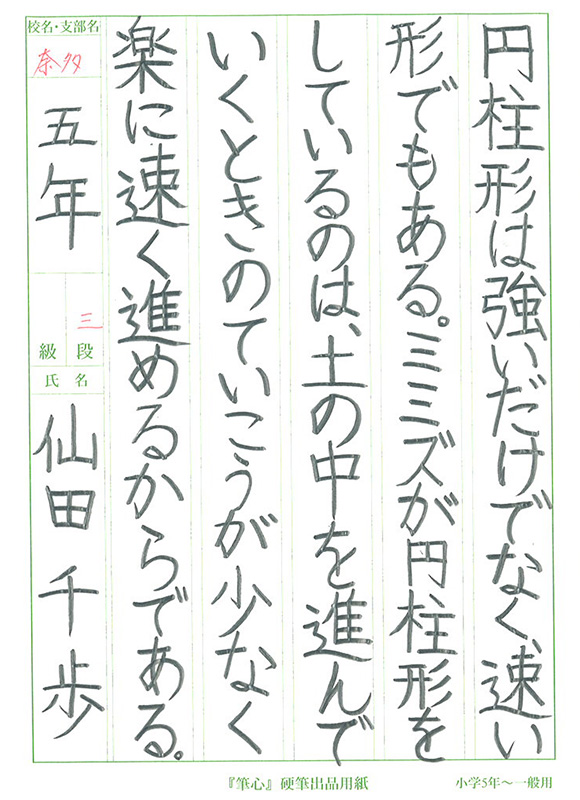 円柱形は強いだけでなく、速い
形でもある。ミミズが円柱形を
しているのは、土の中を進んで
いくときのていこうが少なく
楽に速く進めるからである。
校名・支部名
奈多
五年
三
段
級
氏名
仙田千歩
『筆心』硬筆出品用紙
小学5年〜一般用